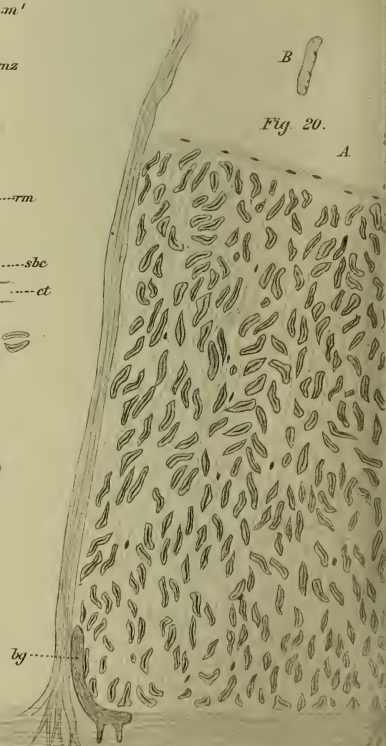 m'
nz
B
Fig. 20.
A
rm
sbc
ct
bg